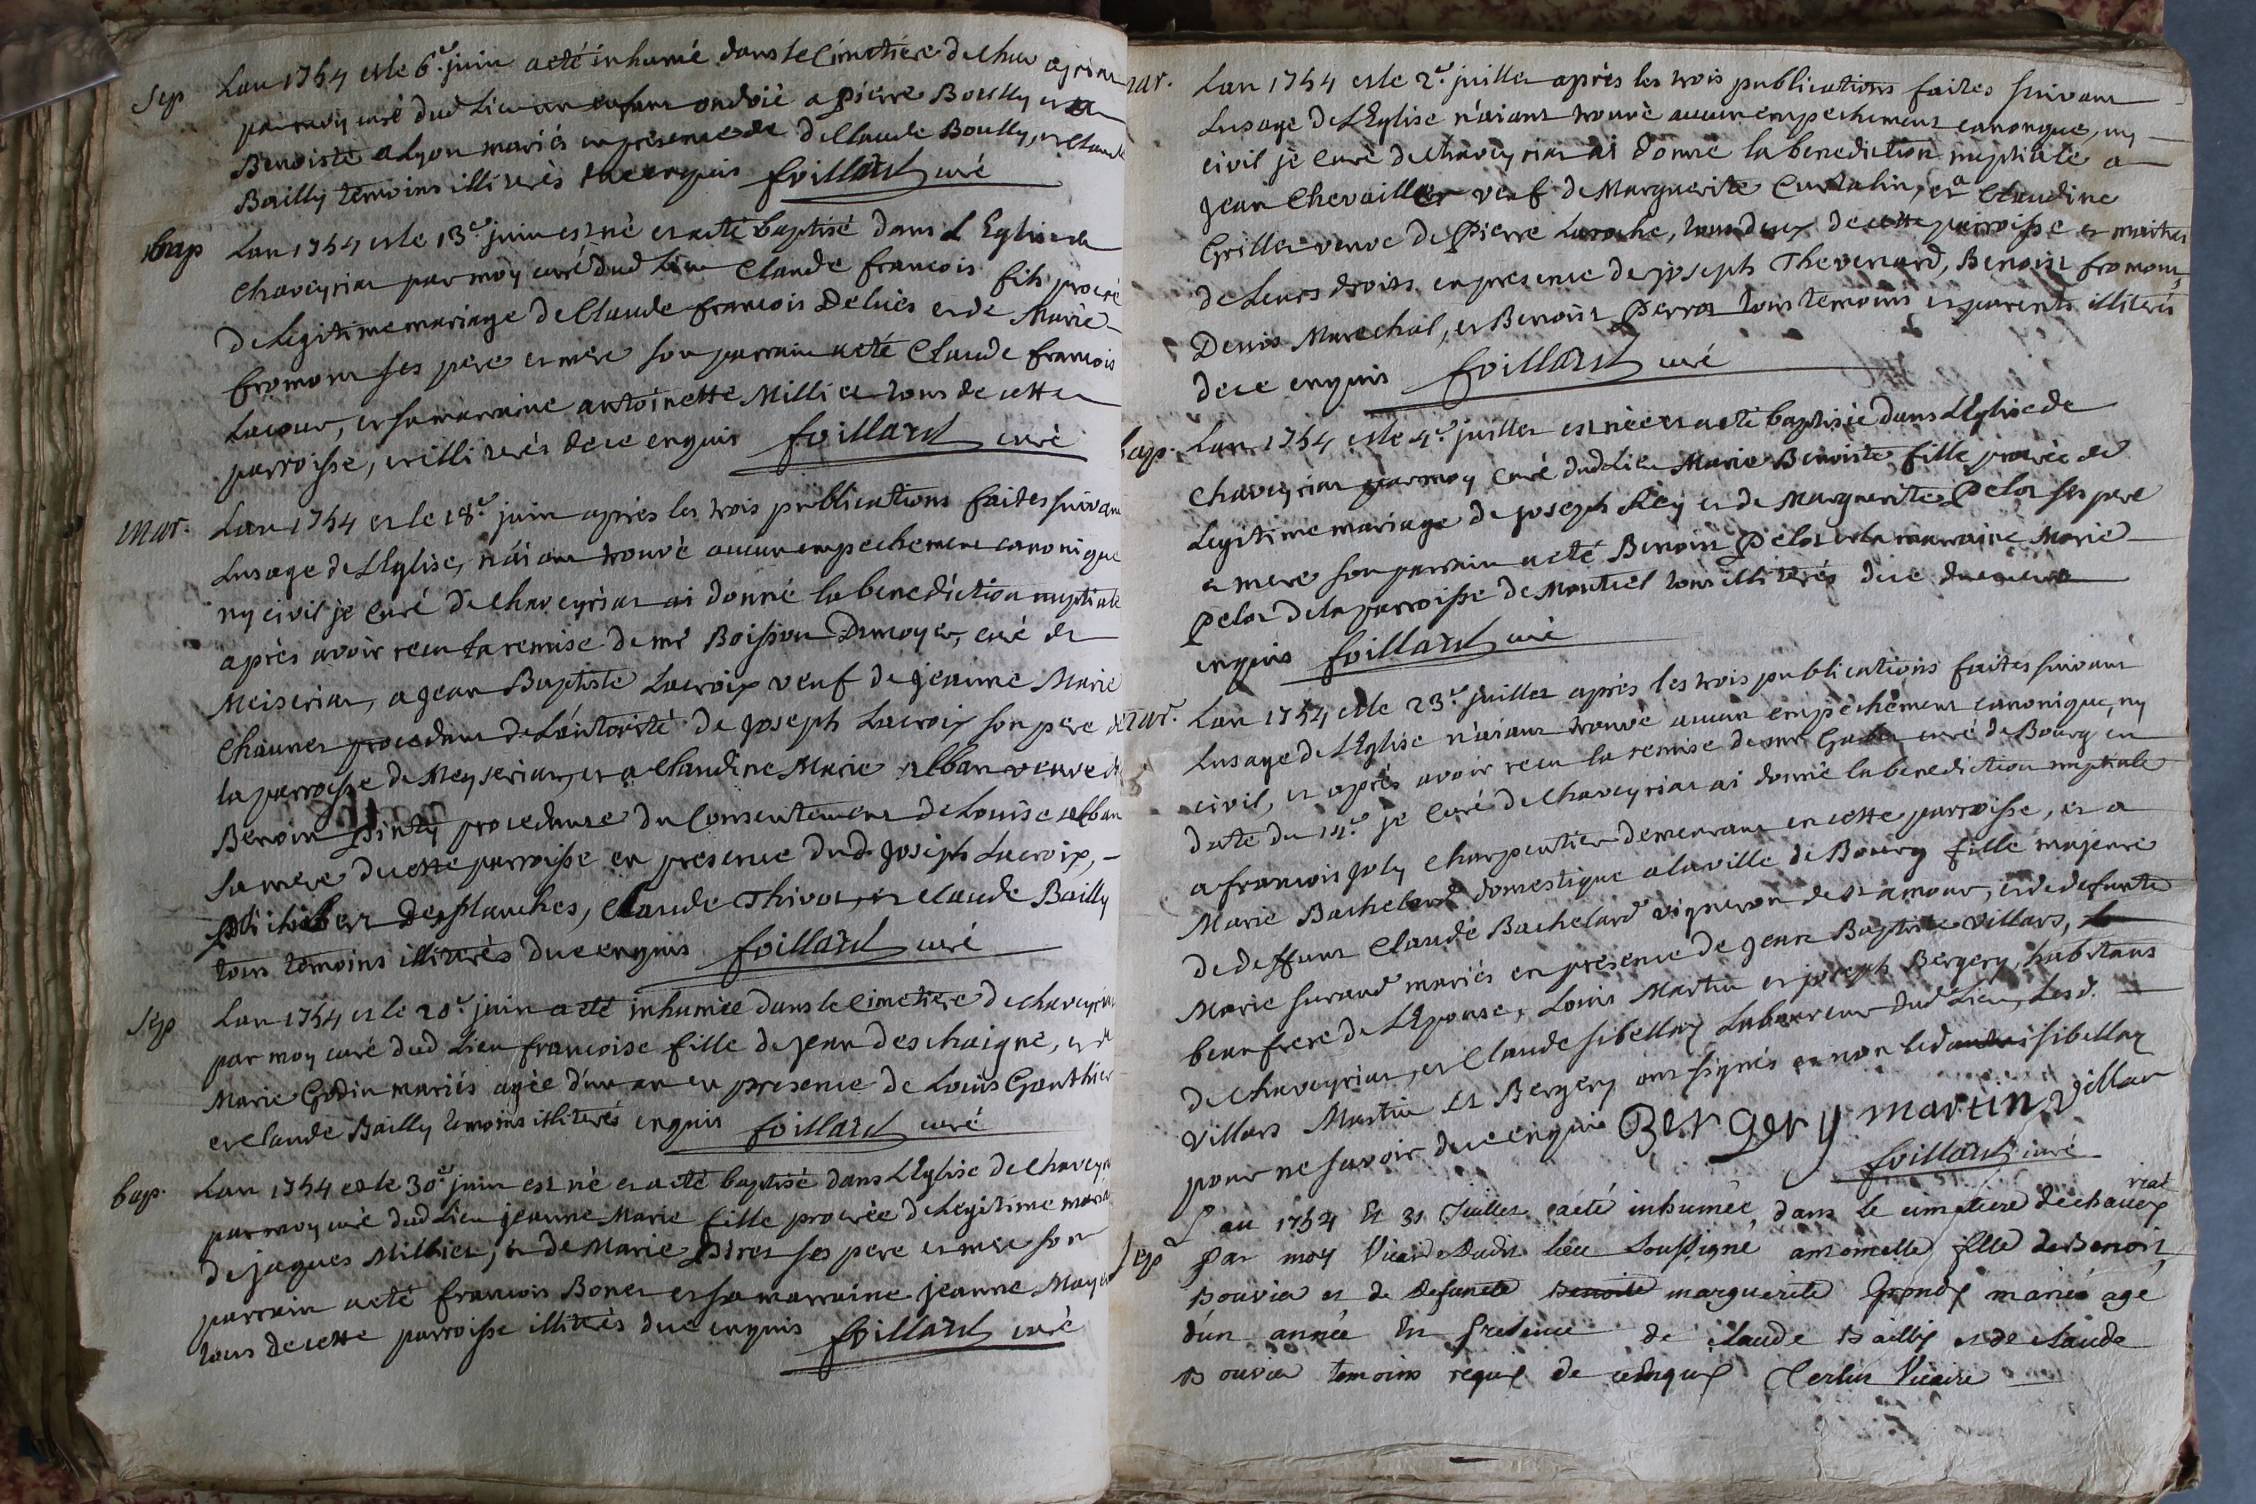 Sep Lan 1754 et le 6e. juin a eté inhumé dans le Cimetière de Chav
par moy curé dud Lieu un enfant ondoié a Pierre Boully et a
Benoiste a Lyon mariés en présence de de Claude Boully, et Claude
Bailly temoins illiterés de ce enquis foillard curé
bap Lan 1754 et le 13e juin est né et a eté baptisé dans L Eglise de
Chaveyriat par moy curé dud Lieu Claude francois fils procréé
de Legitime mariage de Claude francois Delués et de Marie
fromont ses pere et mere son parrain a eté Claude francois
Lacour, et sa marraine antoinette Millier tous de cette
parroisse, et illiterés de ce enquis foillard curé
Mar. Lan 1754 et le 18e juin après les trois publications faites suivant
Lusage de LEglise, n'aiant trouvé aucun empechement canonique
ny civil je Curé de Chaveyriat ai donné la benediction nuptiale
après avoir reçu la remise de mr Boisson Dunoyer, curé de
Meiseriat, a jean Baptiste Lacroix veuf de jeanne Marie
Chaunet procedant de L'autorité de joseph Lacroix son pere de
la parroisse de Meyseriat, et a Claudine Marie alban veuve de
Benoit procedante du Consentement de Louise alban
sa mere de cette parroisse en presence dud. joseph Lacroix,
philibert Desplanches, Claude Thivot, et Claude Bailly
tous temoins illiterés de ce enquis foillard curé
Sep Lan 1754 et le 20e juin a eté inhumée dans le Cimetière de Chaveyriat
par moy curé dud Lieu francoise fille de jean deschaigne, et de
Marie Godin mariés agée d'un an en presence de Louis Gonthier
et Claude Bailly temoins illiterés enquis foillard curé
bap. Lan 1754 et le 30e juin est né et a eté baptisé dans LEglise de Chavey
par moy curé dud Lieu jeanne Marie fille procrée de Legitime maria
de jaques Millier, et de Marie ses pere et mere son
parrain a eté francois Bonet et sa marraine jeanne Moyer
tous de cette parroisse illiterés de ce enquis foillard curé
mar. Lan 1754 et le 2e juillet après les trois publications faites suivant
Lusage de LEglise n'aiant trouvé aucun empechement canonique, ny
civil je Curé de Chaveyriat ai donné la benediction nuptiale a
jean Chevaillier veuf de Marguerite Curtalin, et a Claudine
Grillet veuve de Pierre Laroche, tous deux de cette parroisse et maitres
de Leurs droits en presence de joseph Thevenard, Benoit fromont,
Denis Marechal, et Benoit Perrot tous temoins et parents illiterés
de ce enquis foillard curé
bap. Lan 1754 et le 4e juillet est née et a eté baptisée dans LEglise de
Chaveyriat par moy Curé dud Lieu Marie Benoiste fille procrée de
Legitime mariage de joseph Rey et de Marguerite Pelot ses pere
et mere son parrain a eté Benoit Pelot et la marraine Marie
Pelot de la parroisse de Montcel tous illiterés de ce
enquis foillard curé
mar. Lan 1754 et le 23e juillet après les trois publications faites suivant
Lusage de LEglise n'aiant trouvé aucun empechement canonique, ny
civil, et après avoir reçu la remise de mr curé de Bourg en
date du 14e je Curé de Chaveyriat ai donné la benediction nuptiale
a francois joly Charpentier demeurant en cette parroisse, et a
Marie Bachelard domestique a la ville de Bourg fille majeure
de deffunt Claude Bachelard vigneron de St amour, et de defunte
Marie suraud mariés en presence de jean Baptiste villars,
beaufrere de LEpouse, Louis Martin et joseph Bergery, habitans
de Chaveyriat, et Claude sibellas Laboureur dud Lieu, Lesd.
Villars Martin Et Bergery ont signés et non led sibellas
pour ne savoir de ce enquis Bergery martin villar
foillard curé
riat
Sep L'an 1754 Et 31 Juillet a été inhumée, dans le cimetiere de chavey
par moy Vicaire dudit lieu soussigné antoinette fille de Benoit
Bouvier et de defuncte Benoite marguerite mariés agé
d'un année En presence de claude Bailly et de claude
Bouvier temoins requis de ce enquis Vicaire